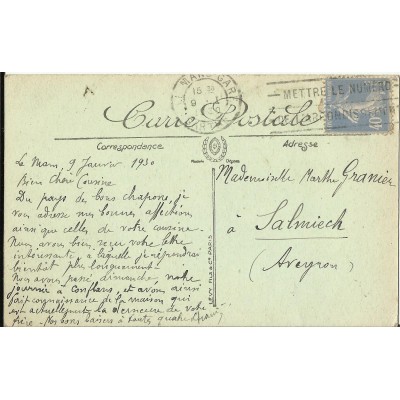 LE MANS GARE
METTRE LE NUMÉRO
D'ARRONDISSEMENT
40
Carte Postale
Correspondance
Adresse
Le Mans, 9 Janvier 1930
Bien Chère Cousine
Du pays de bons chapons, je
vous adresse mes bonnes affections
ainsi que celles de votre cousine.
Nous avons bien reçu votre lettre
intéressante à laquelle je répondrai
bientôt plus longuement.
Nous avons passé dimanche, notre
journée à Conflans, et avons ainsi
fait connaissance de la maison qui
est actuellement la demeure de votre
frère. Nos bons baisers à toutes quatre
Mademoiselle Marthe Granier
à
Salmiech
(Aveyron)
LEVY FILS & Cie PARIS